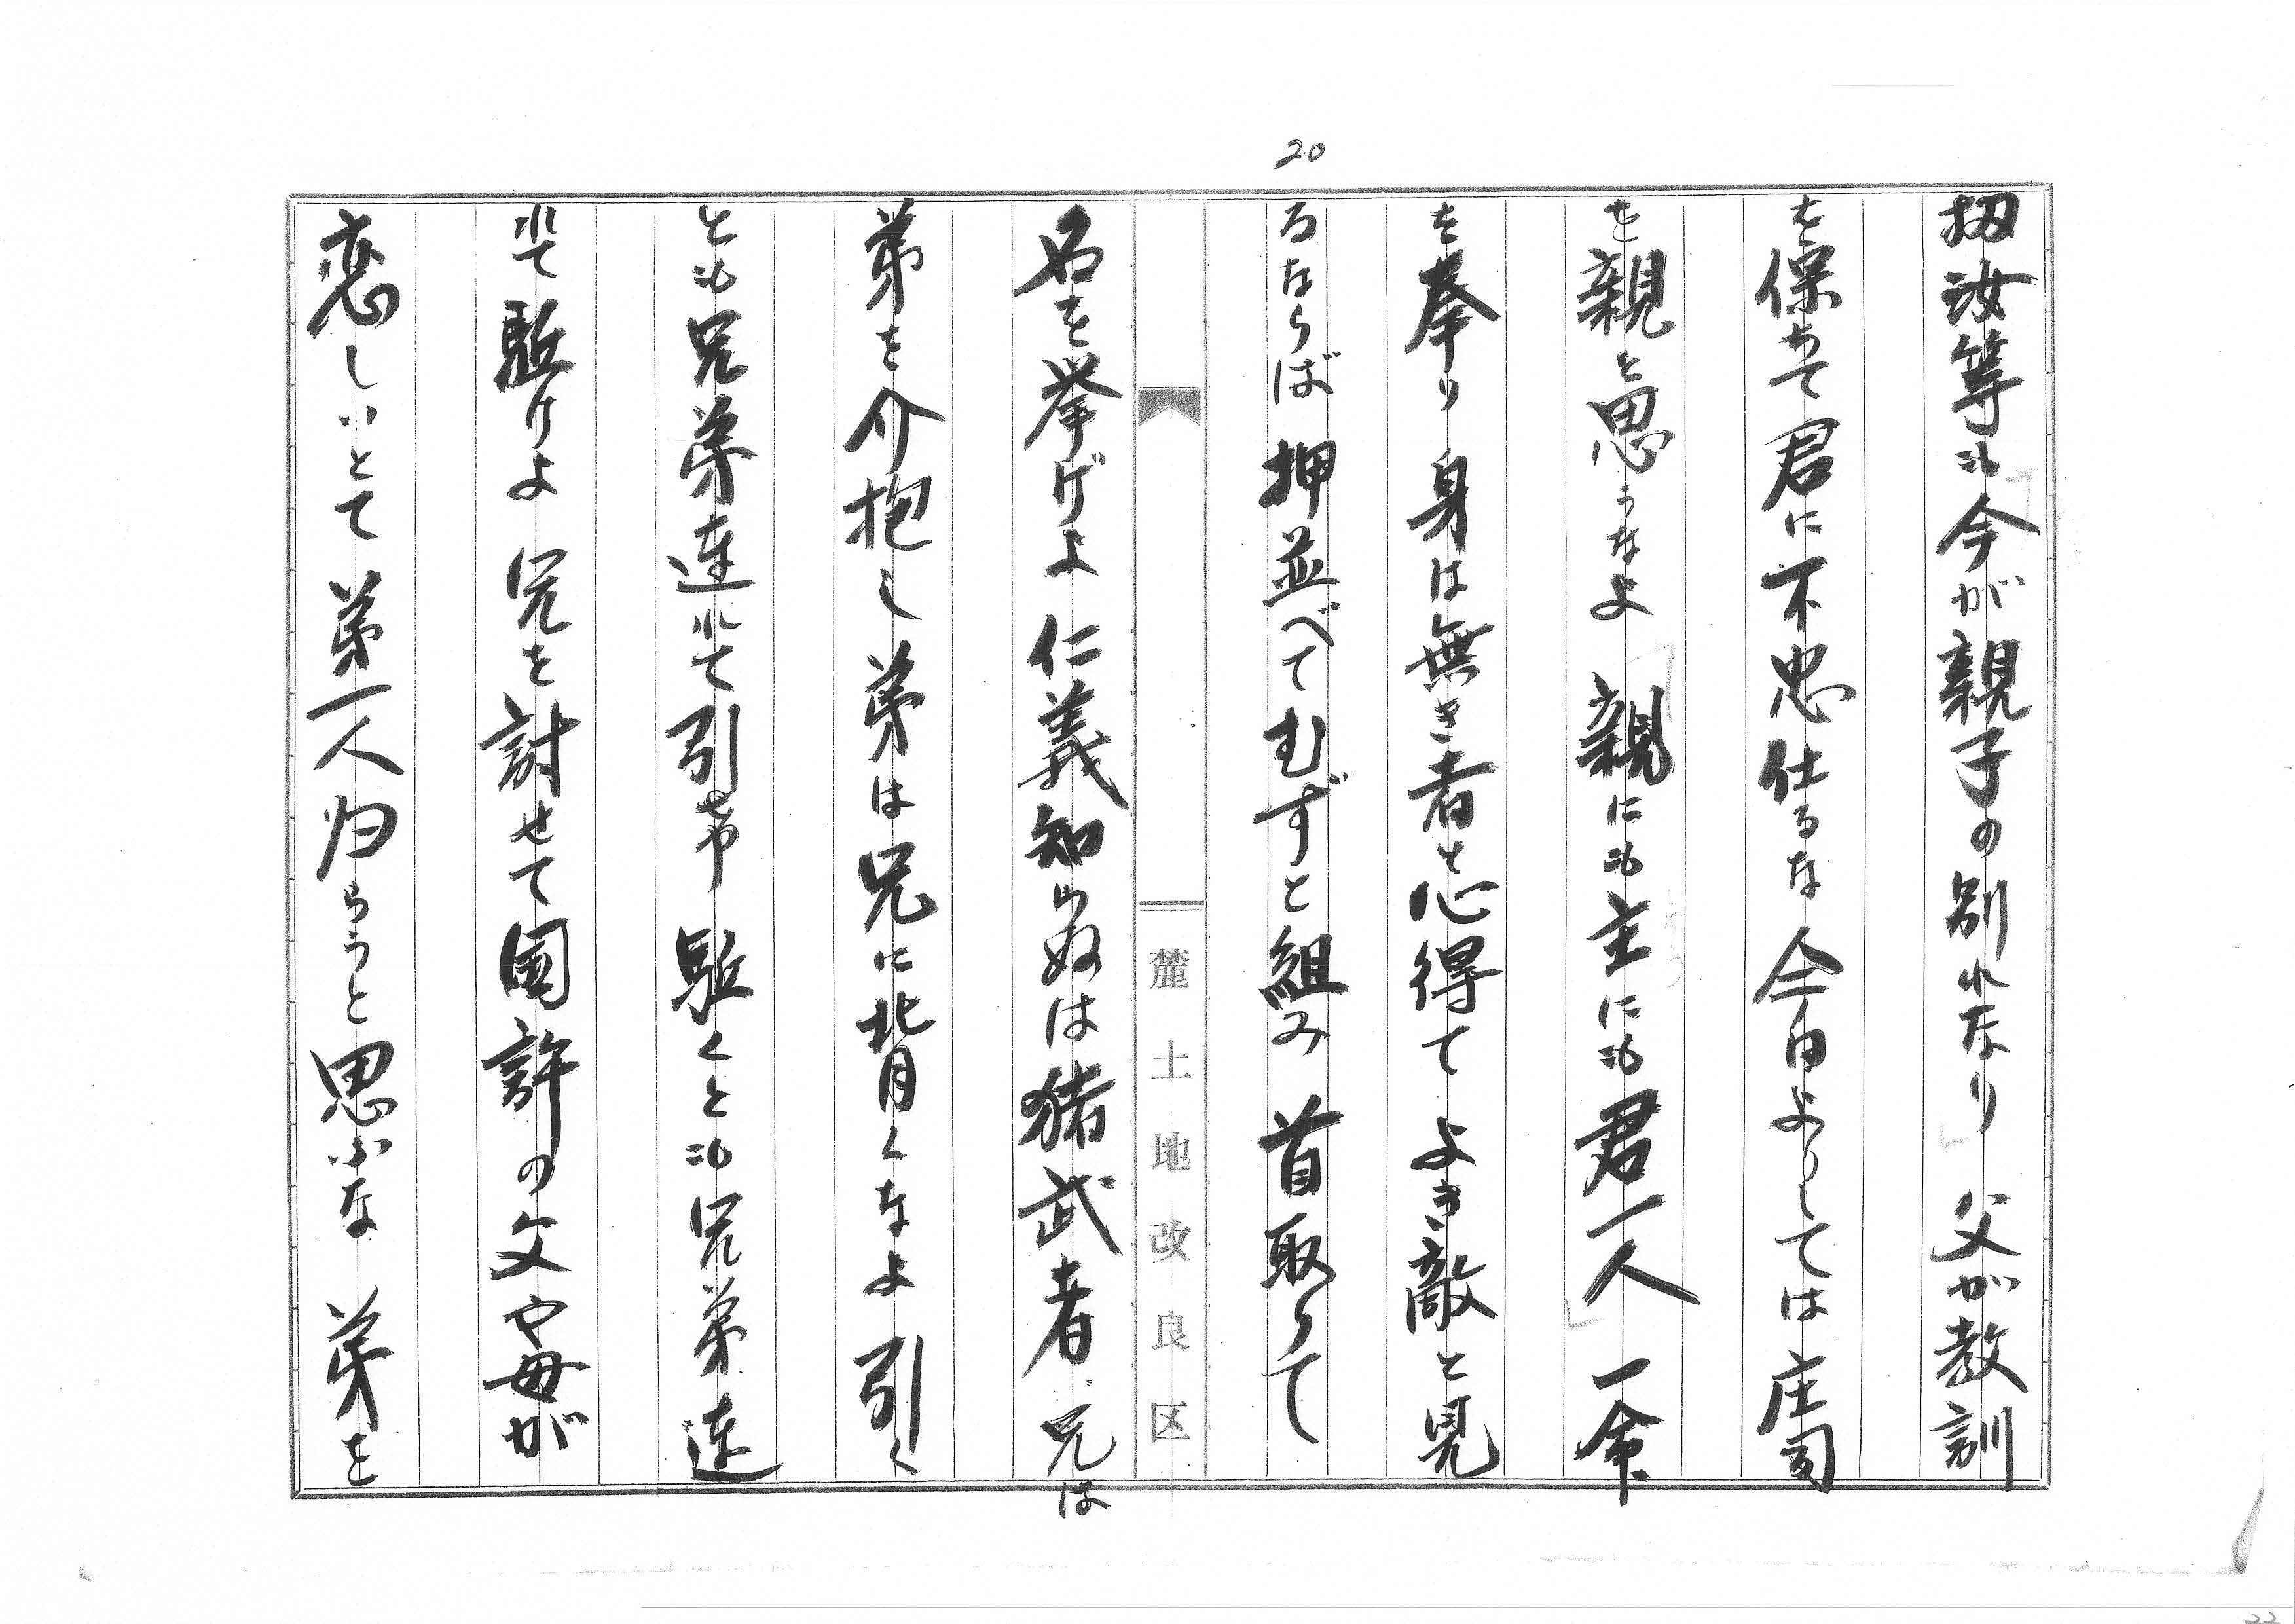 20
扨汝等も今が親子の別れなり 父が教訓
を保ちて君に不忠仕るな今日よりしては庄司
を親と思うなよ 親にも主にも君一人 一命
を奉り身は無き者と心得て よき敵と見
るならば押並べてむずと組み 首取って
麓土地改良区
名を挙げよ 仁義知らぬは猪武者 兄は
弟を介抱し 弟は兄に背くなよ 引く
とも兄弟連れて引け 駈くとも兄弟連
れて駈けよ 兄を討せて国許の父や母が
恋しいとて 弟一人帰らうと思ふな 弟を